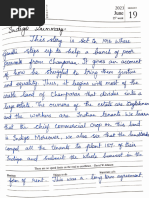 2021
June
25th week
19
Indigo Summary:-
This story is set to, 1916 where
Gandhi steps up to help a bunch of poor
peasants from Champaran. It gives an account
of how he struggled to bring them justice
and equality. Thus, it begins with most of the
arable land of Champaran that divides into a
large estate. The owners of the estate are Englishmen
and the workers are Indian tenants. We learn
that the chief commercial crop on this land
is Indigo. Moreover, we also see that the landlords
compel all the tenants to plant 15% of their
Indigo and submit the whole harvest in the
form of rent. This was a long term agreement